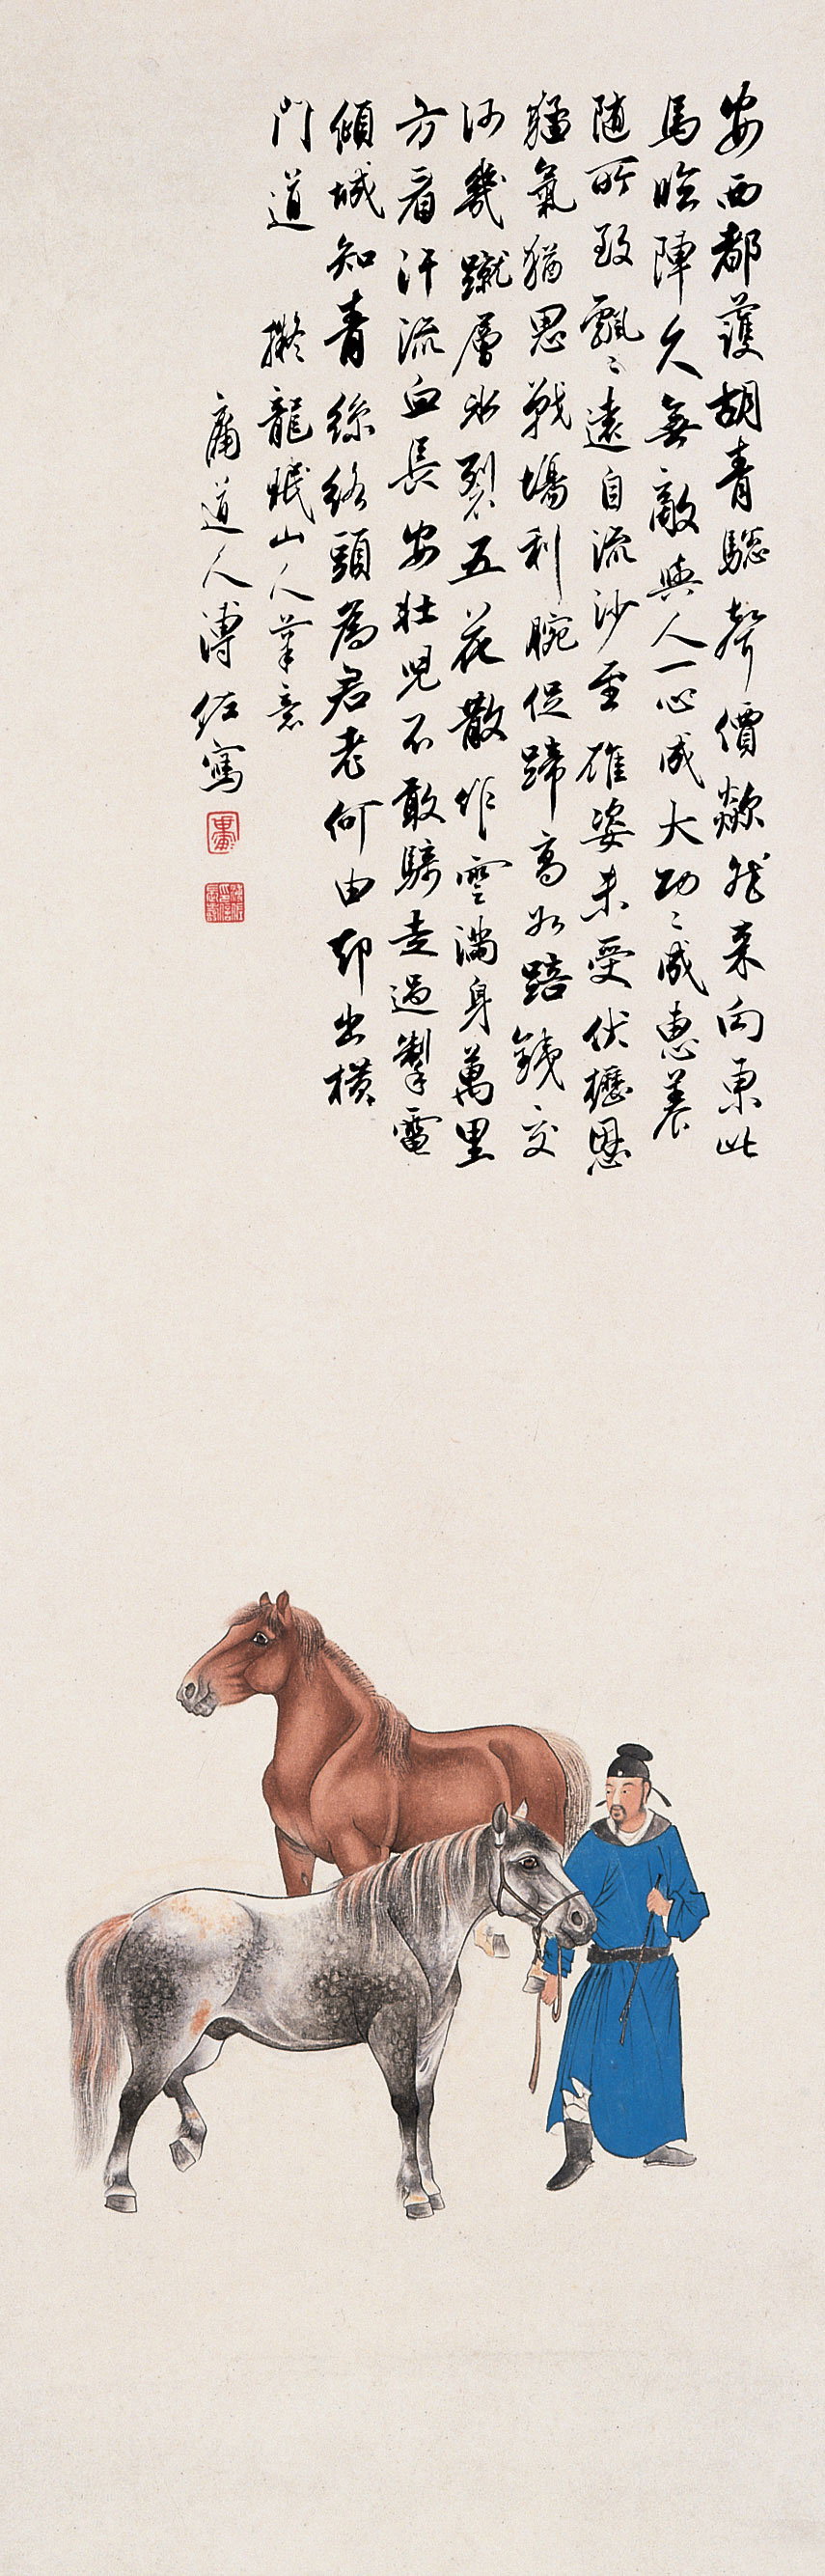 安西都護胡青驄聲價歘然来向東此
馬臨陣久無敵與人一心成大功〻成惠養
随所致飄〻遠自流沙至雄姿未受伏櫪恩
猛氣猶思戰場利腕促蹄高如踣鐵交
河幾蹴層氷裂五花散作雲滿身萬里
方看汗流血長安壯児不敢騎走過掣電
傾城知青絲絡頭為君老何由却出橫
門道
擬龍眠山人筆意
庸道人溥佐寫